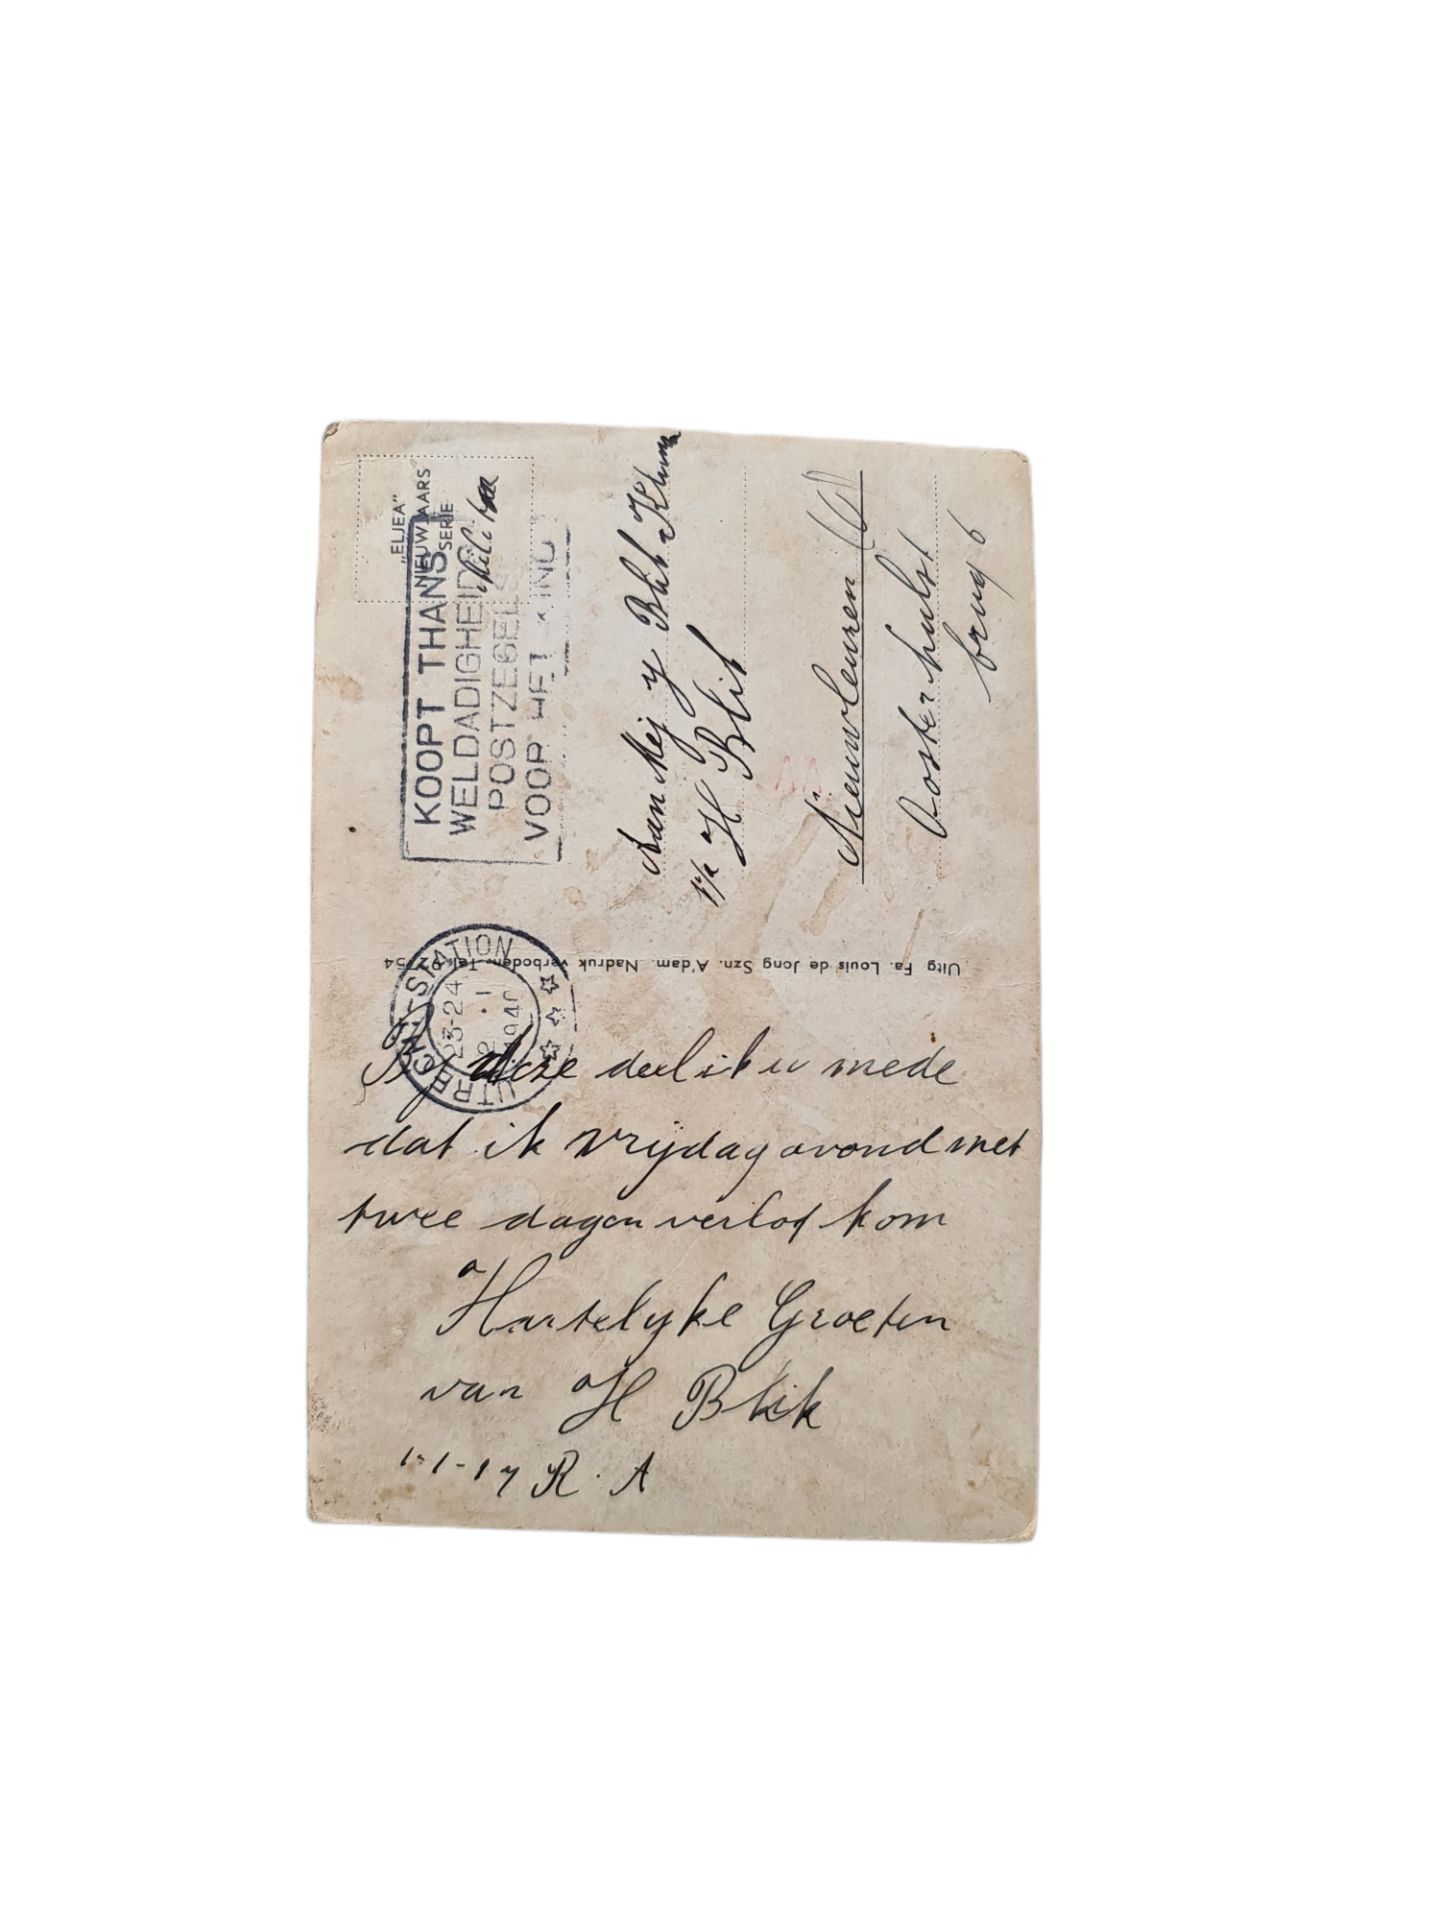 "ELJEA"
NIEUWJAARS
SERIE
KOOPT THANS
WELDADIGHEIDS
POSTZEGELS
VOOR HET KIND
UTRECHT-STATION
23-24
2.1
1940
Aan Mej y Blik
p/a H Blik
Nieuwleusen (O)
Oosterhulst
brug 6
Uitg Fa. Louis de Jong Szn. A'dam. Nadruk verboden. Tel. 92754
By deze deel ik u mede
dat ik vrijdag avond met
twee dagen verlof kom
Hartelyke Groeten
van H Blik
1-1-17 R.A